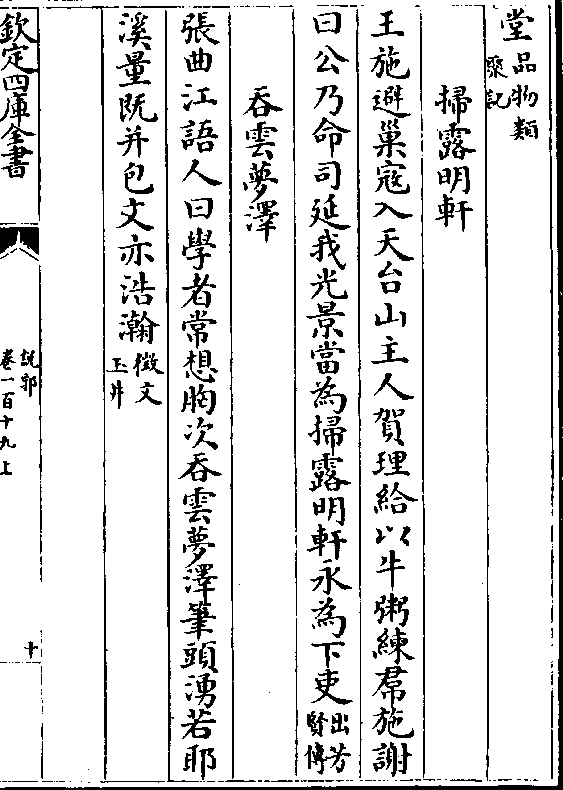 堂品物類聚記
掃露明軒
王施避巢寇入天台山主人賀理給以牛粥練帬施謝
曰公乃命司延我光景當為掃露明軒永為下吏出芳賢傳
吞雲夢澤
張曲江語人曰學者常想胸次吞雲夢澤筆頭湧若耶
溪量既并包文亦浩瀚徵文玉井
欽定四庫全書
說郛
卷一百十九上
十